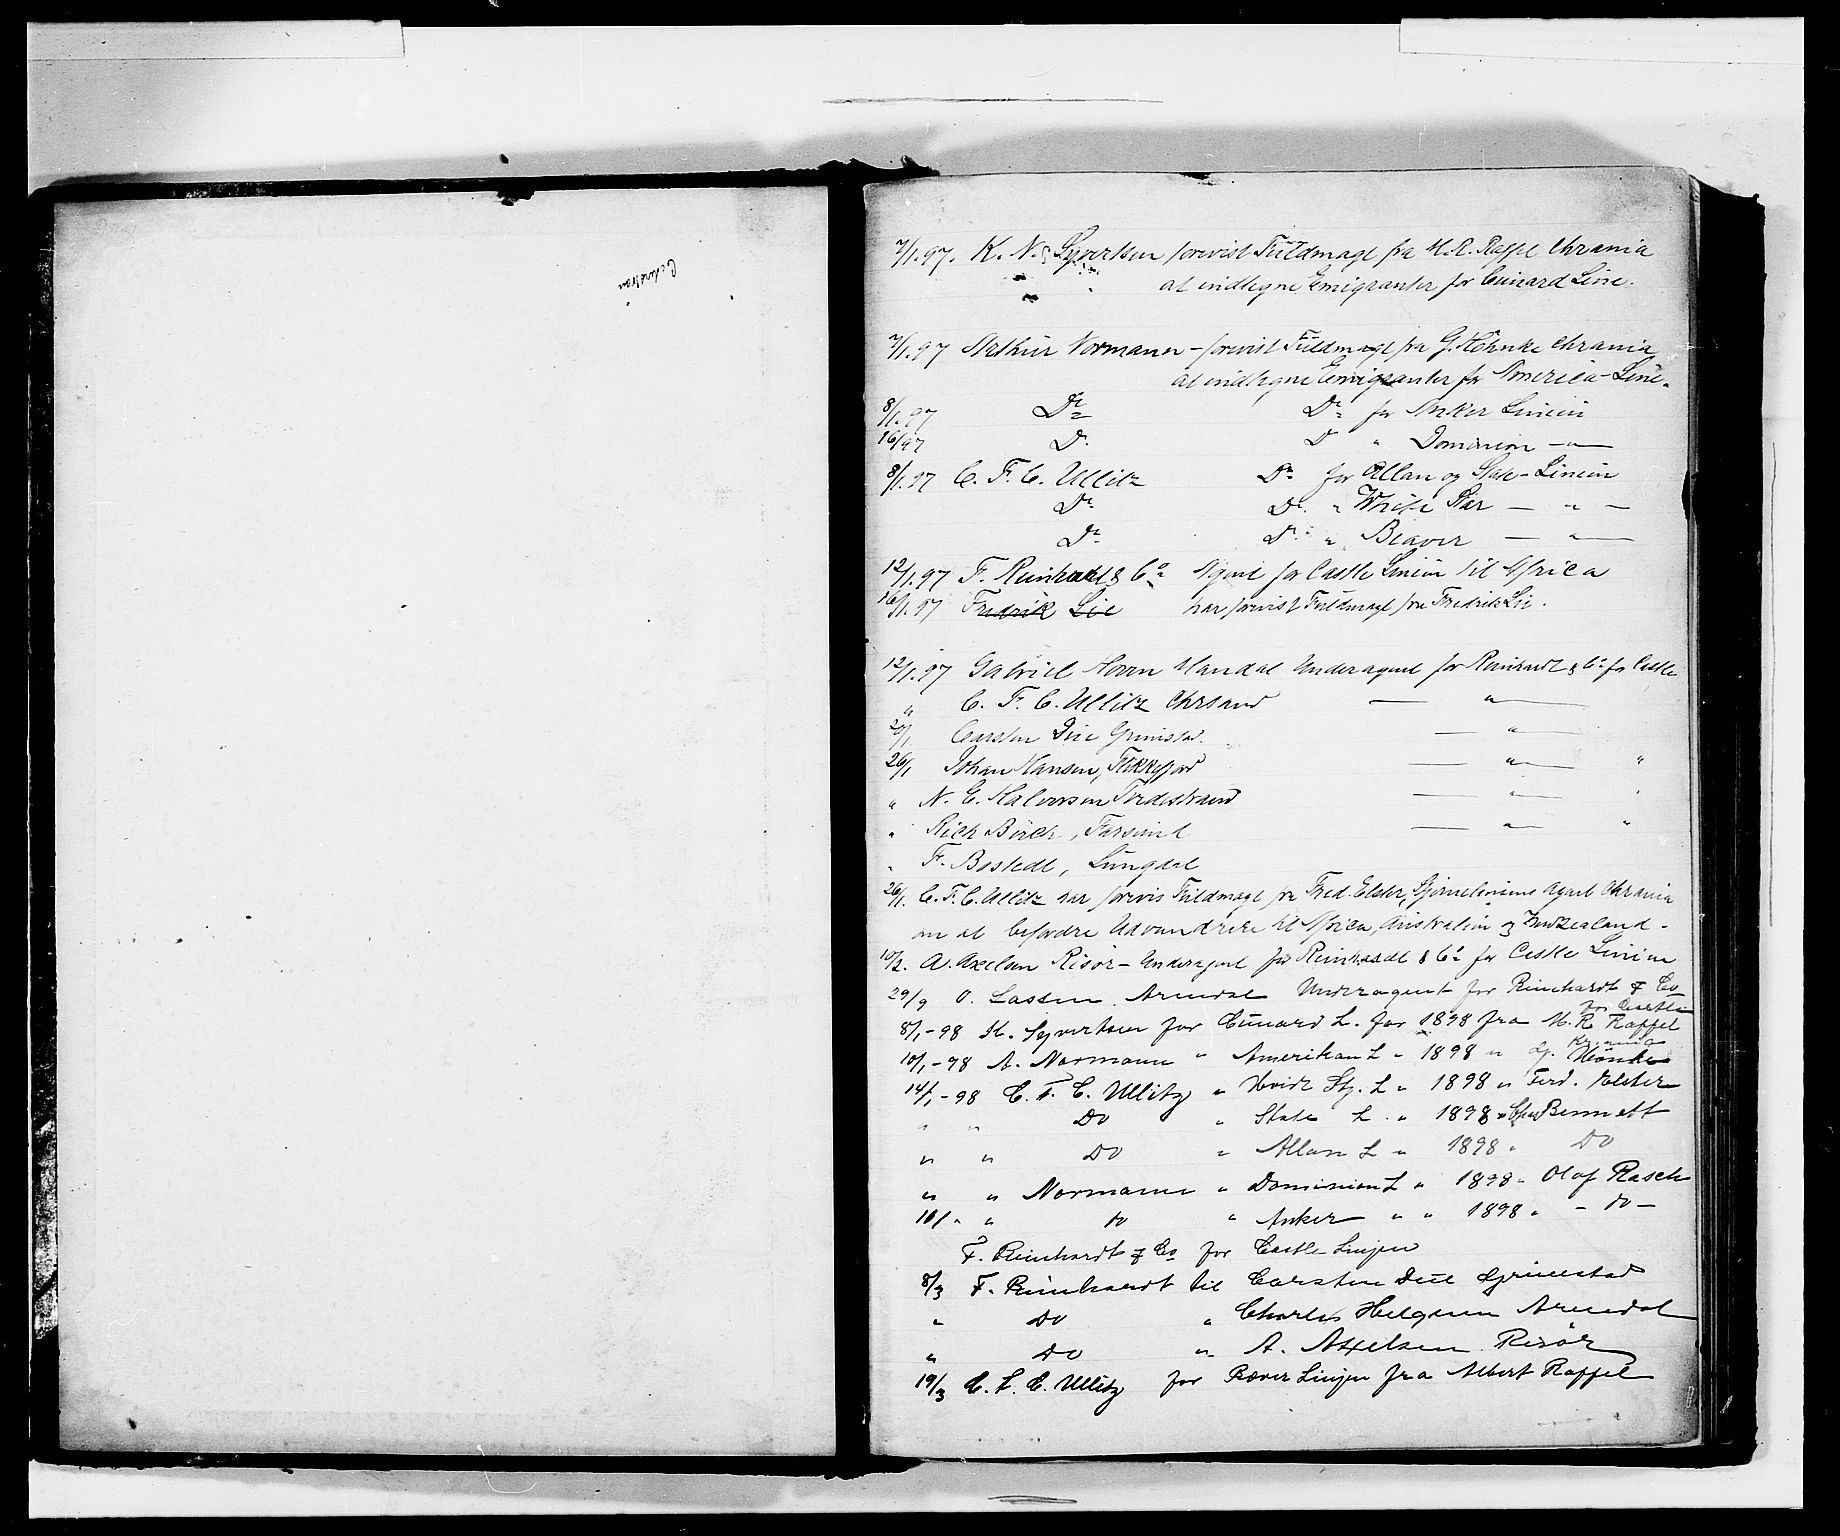 7/1.97. K. N. Syvertsen forevist Fuldmagt fra M. R. Raffel Chrania
at indtegne Emigranter for Cunard Line.
7/1.97 Arthur Normann - forevist Fuldmagt fra G. Hohnke Chrania
at indtegne Emigranter for America-Line.
8/1.97 Do Do for Anker Linien
16/97 Do D " Dominion — " —
8/1.97 C. F. C. Ullitz Do for Allan og State-Linien
Do Do " White Star — " —
Do Do " Beaver — " —
12/1.97 F. Reinhardt & Co Agent for Castle Linien til Africa
16/1.97 Fredrik Lie har forevist Fuldmagt fra Fredrik Lie.
12/1.97 Gabriel Mandal Underagent for Reinhardt & Co for Castle
" C. F. C. Ullitz Chrsand — " —
20/1 Carsten Due Grimstad. — " —
26/1 Johan Hansen, Flekkefjord — " — "
" N. E. Halvorsen Tvedestrand — " — "
" Rich Birch, Farsund — " — "
" Fr. Bostedt, Lyngdal
26/1. C. F. C. Ullitz har forevis Fuldmagt fra Fred. Elster, Stjerneliniens Agent Chrania
om at befordre Udvandrere til Africa, Australien og Zealand -
10/2. A. Axelsen Risør - Underagent for Reinhardt & Co for Castle Linien
29/9 O. Lassen Arendal Underagent for Reinhardt & Co
for Castle
8/1-98 H. Syvertsen for Cunard L. for 1898 fra M. R. Raffel
Krania
10/1-98 A. Normann " Amerikan L " 1898 " G. Hönke
14/1-98 C. F. C. Ullitz " Hvide Stj. L " 1898 " Ferd. Elster
" " Do " State L. " 1898 " Bennett
" " Do " Allan L " 1898 " Do
" " Normann " Dominion L " 1898 " Olaf Rasch
10/ " " Do " Anker " " 1898 " - Do -
F. Reinhardt & Co for Castle Linjen
8/3 F. Reinhardt til Carsten Due Grimstad
" Do " Charles Helgesen Arendal
" Do " A. Axelsen Risør
19/3 C. F. C. Ullitz for Bæver Linjen fra Albert Raffel